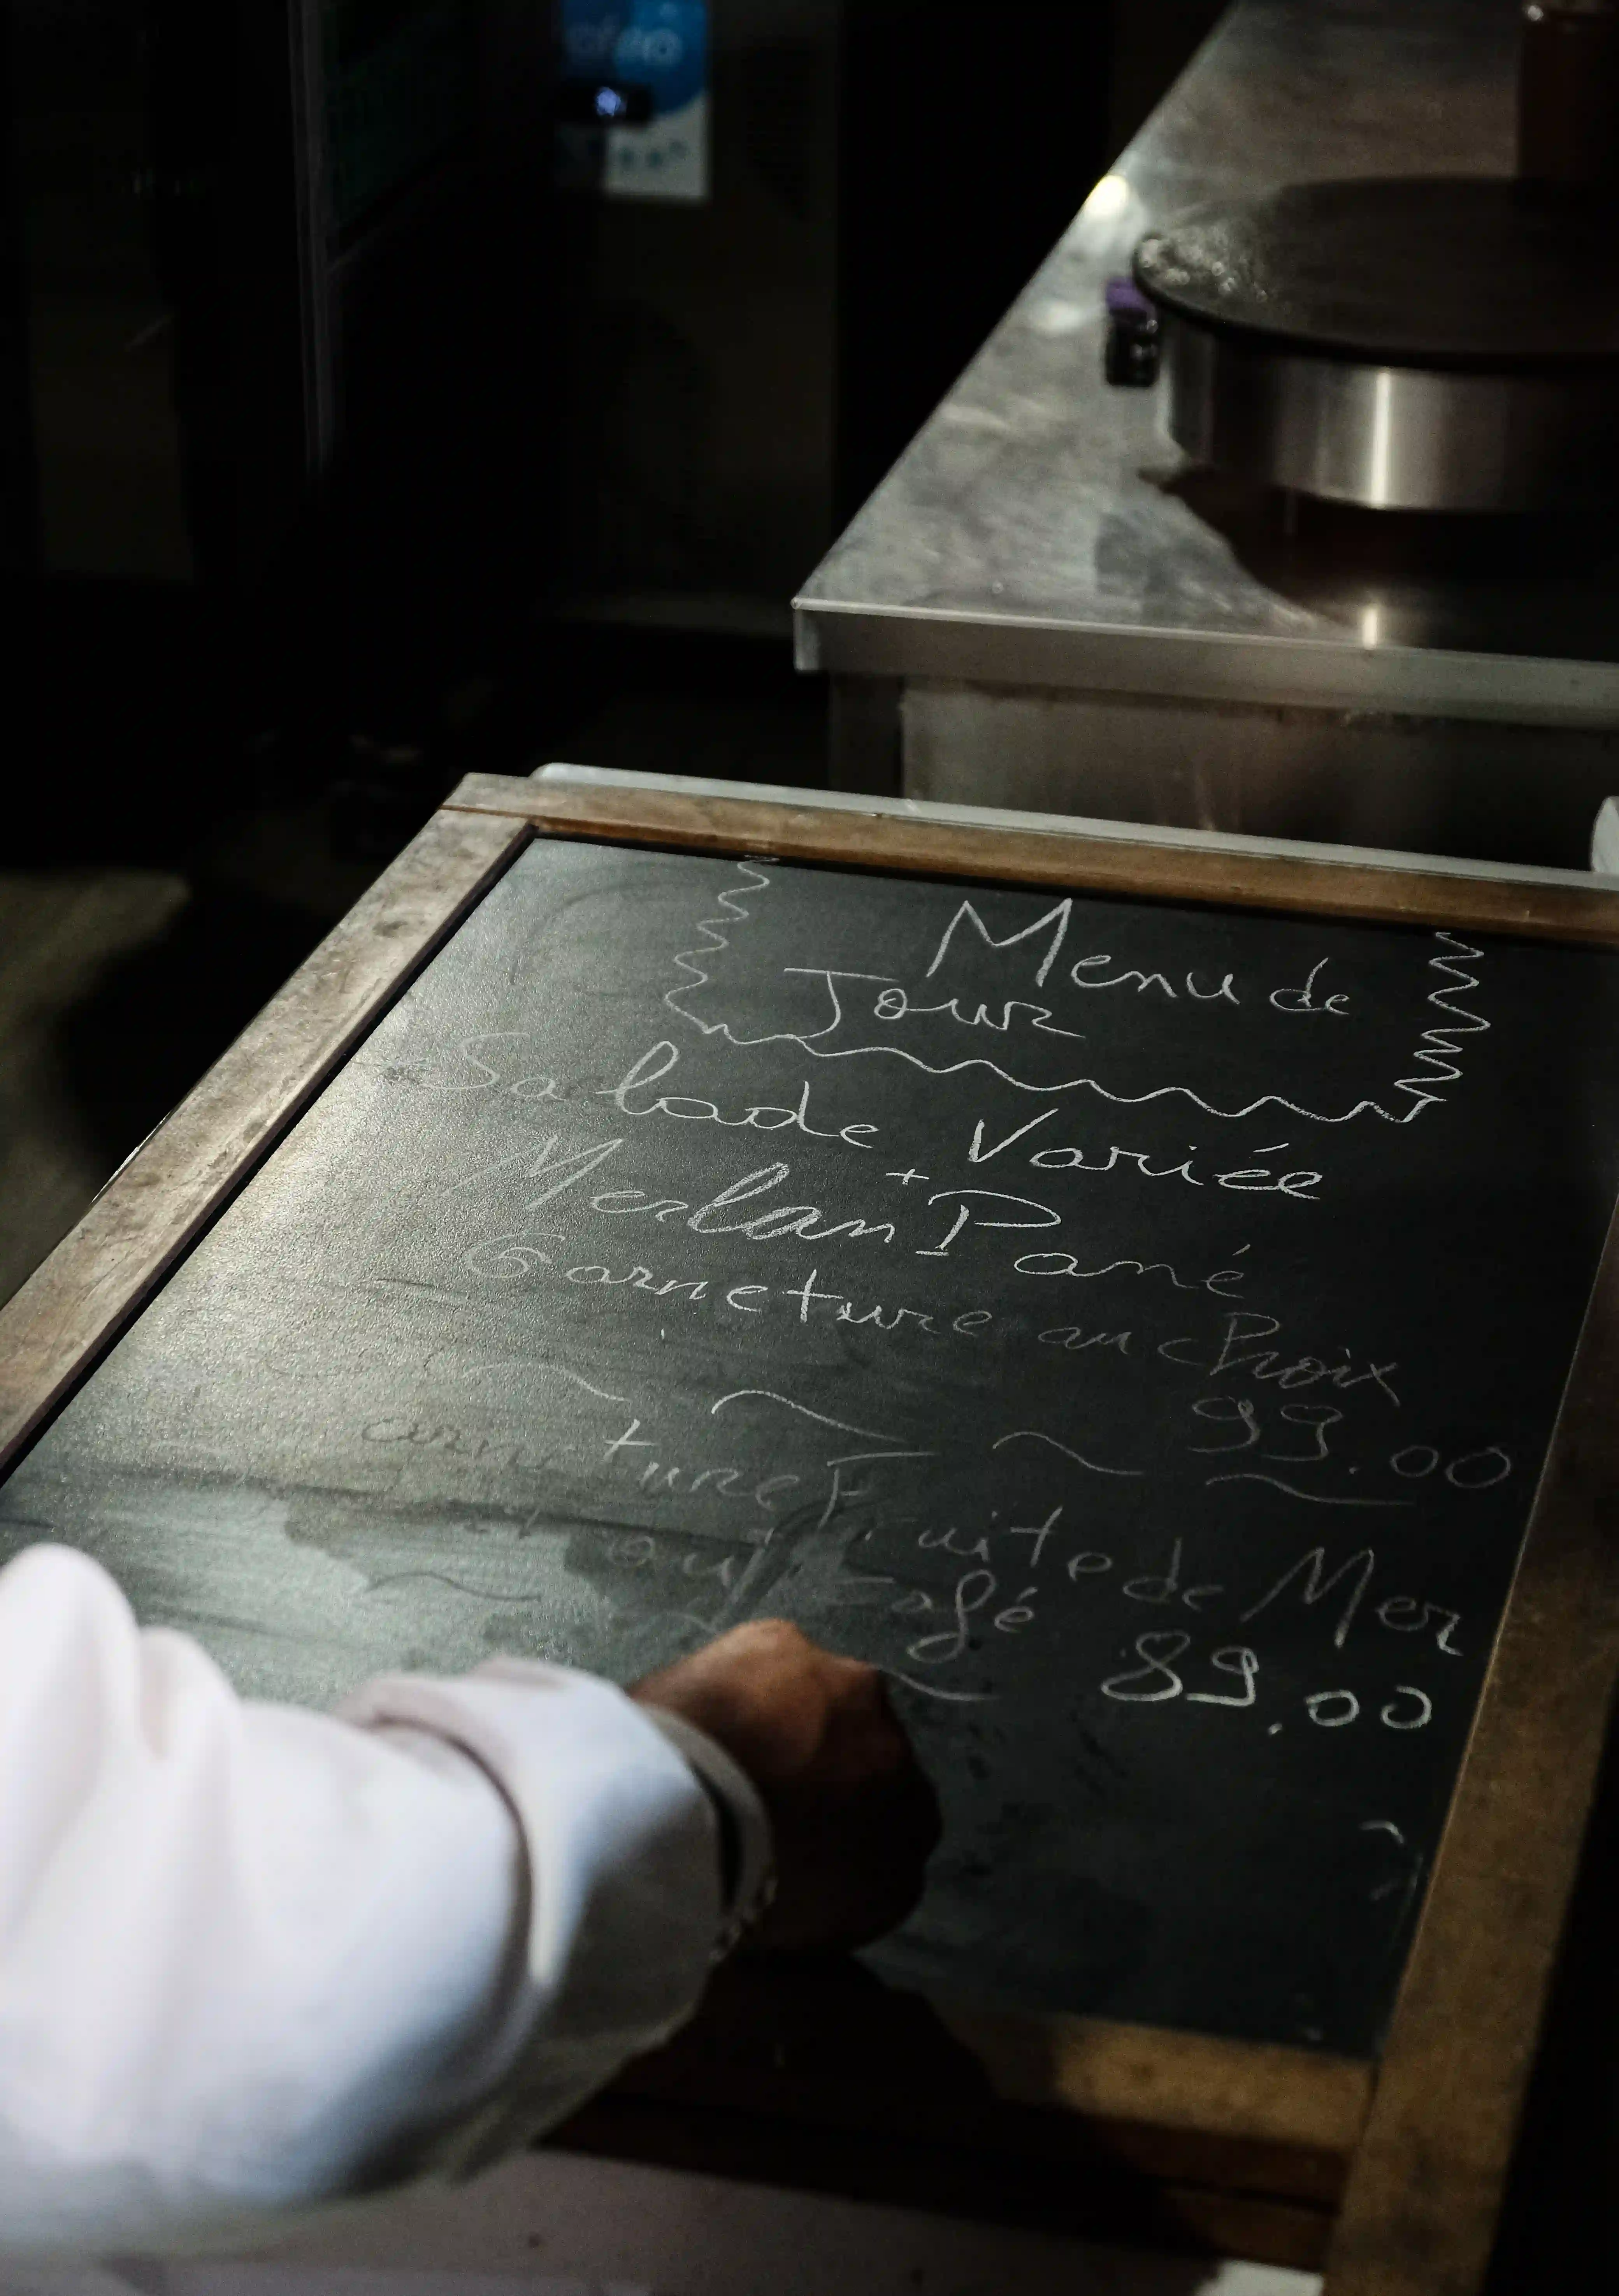 Menu de
Jour
Salade Variée
+
Merlan Pané
Garneture au choix
99.00
Fruite de Mer
Café
89.00